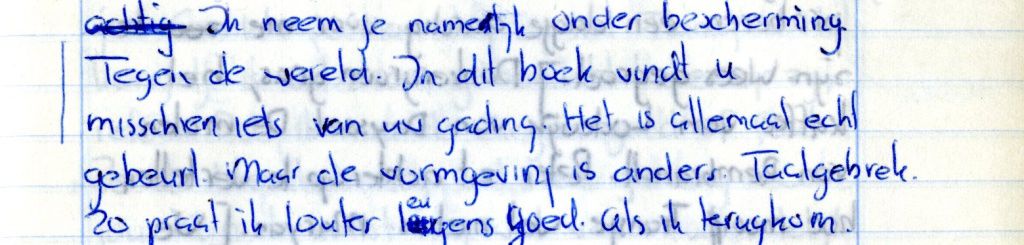 ~~achtig~~ Ik neem je namelijk onder bescherming
Tegen de wereld. In dit boek vindt u
misschien iets van uw gading. Het is allemaal echt
gebeurt. Maar de vormgeving is anders. Taalgebrek.
Zo praat ik louter leugens goed. als ik terugkom.